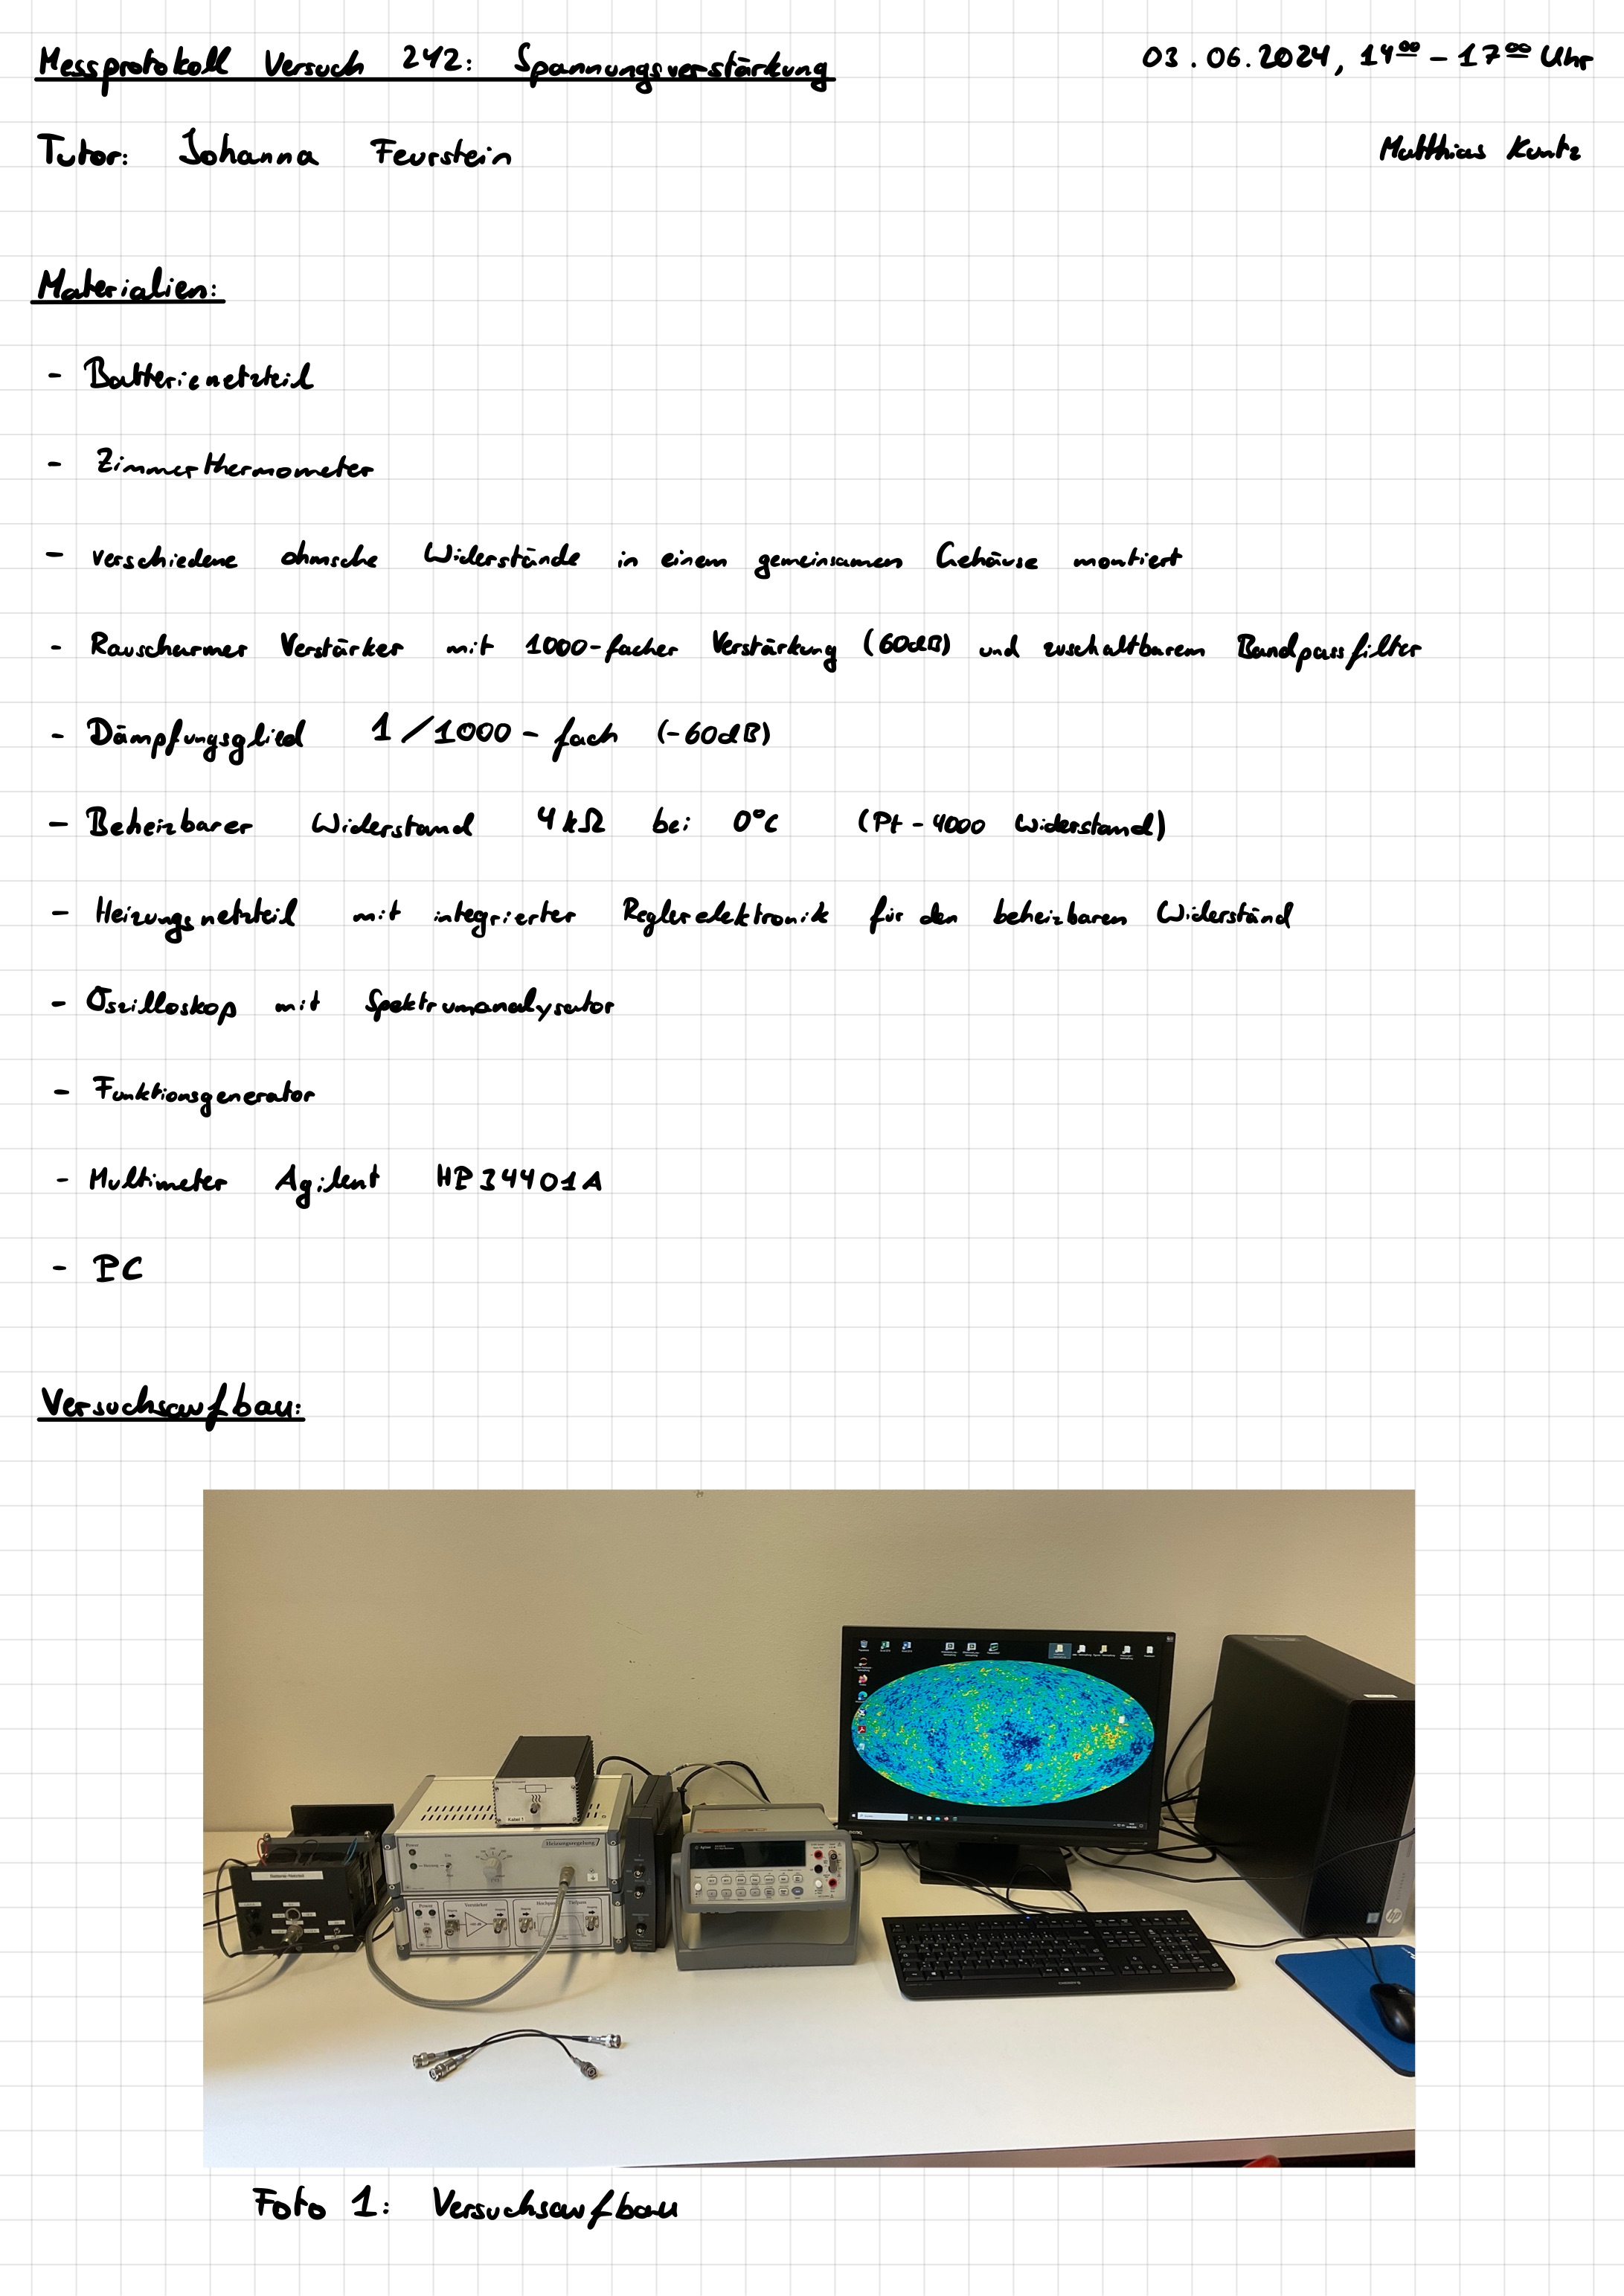 Messprotokoll Versuch 242: Spannungsverstärkung
03.06.2024, 14⁰⁰ – 17⁰⁰ Uhr
Tutor: Johanna Feurstein
Matthias Kuntz
Materialien:
- Batterienetzteil
- Zimmerthermometer
- verschiedene ohmsche Widerstände in einem gemeinsamen Gehäuse montiert
- Rauscharmer Verstärker mit 1000-facher Verstärkung (60dB) und zuschaltbarem Bandpassfilter
- Dämpfungsglied 1/1000-fach (-60dB)
- Beheizbarer Widerstand 4kΩ bei 0°C (Pt-4000 Widerstand)
- Heizungsnetzteil mit integrierter Reglerelektronik für den beheizbaren Widerständ
- Oszilloskop mit Spektrumanalysator
- Funktionsgenerator
- Multimeter Agilent HP34401A
- PC
Versuchsaufbau:
Kabel 1
Power
Heizungsregelung
Power
Verstärker
Hochpass
Tiefpass
Agilent
hp
Foto 1: Versuchsaufbau